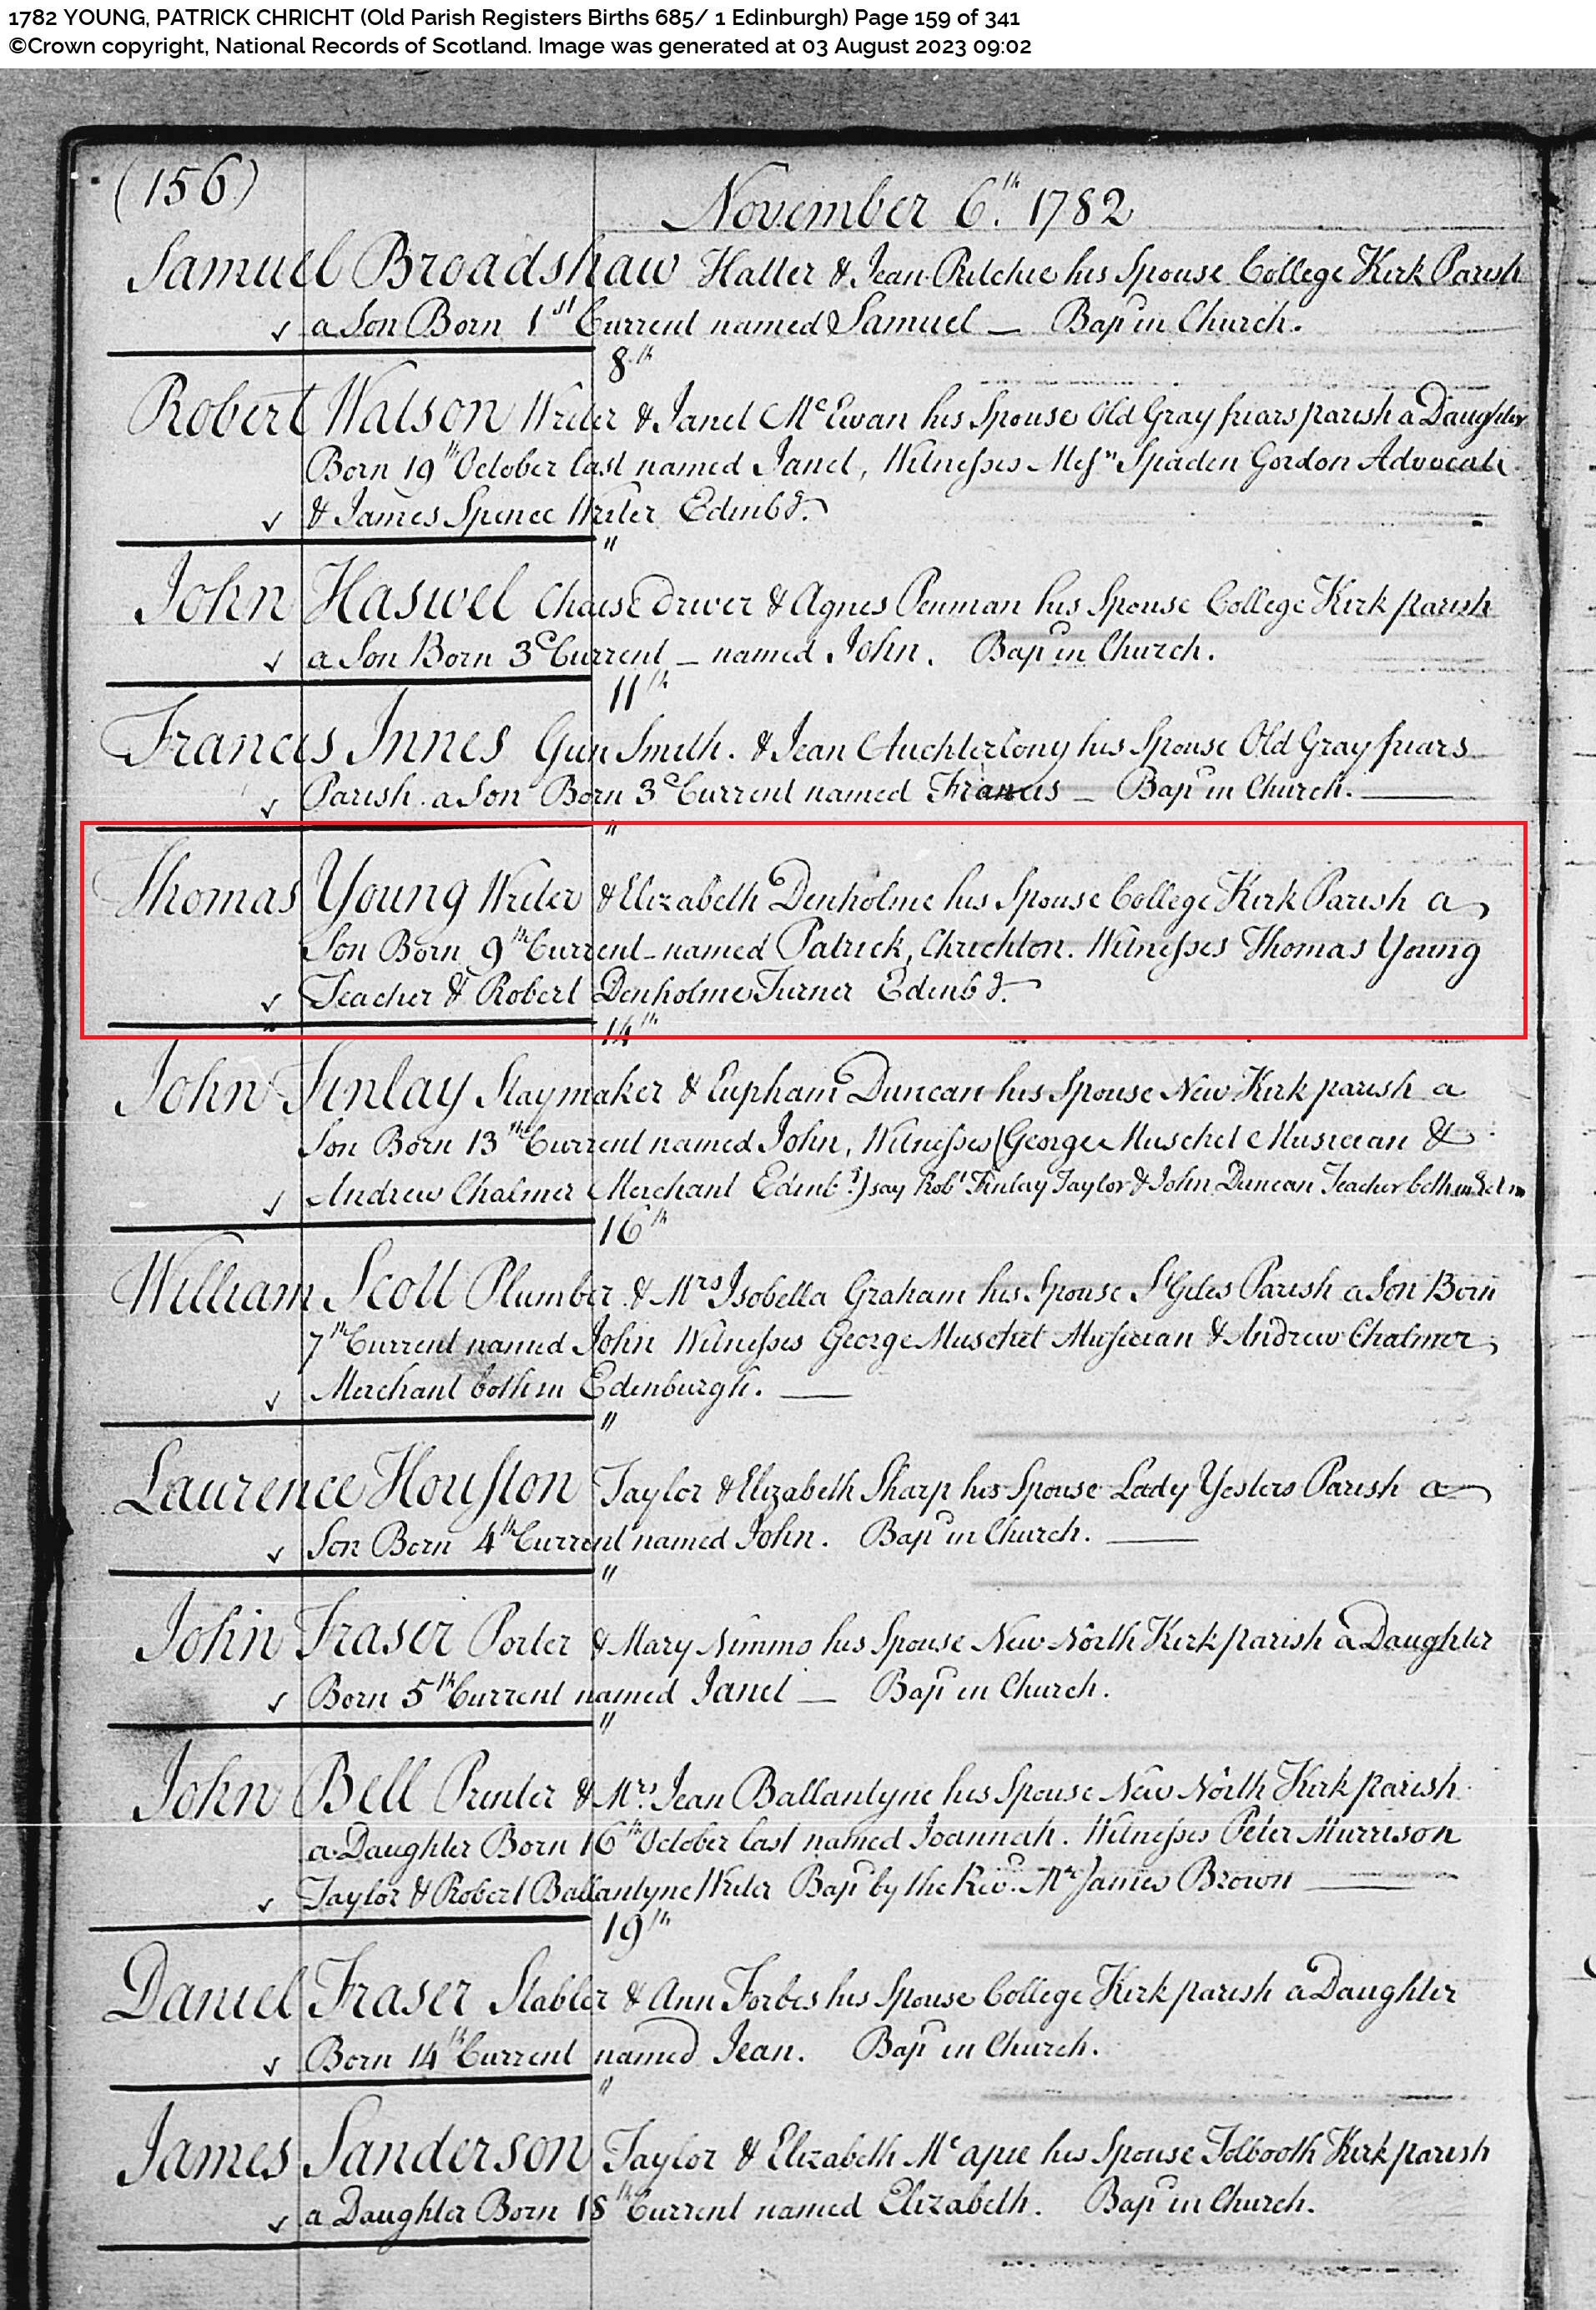 1782 YOUNG, PATRICK CHRICHT (Old Parish Registers Births 685/ 1 Edinburgh) Page 159 of 341
©Crown copyright, National Records of Scotland. Image was generated at 03 August 2023 09:02
(156)
November 6th. 1782
Samuel Broadshaw Hatter & Jean Ritchie his Spouse College Kirk Parish
a Son Born 1st Current named Samuel — Bapd in Church.
8th
Robert Watson Writer & Janet McEwan his Spouse Old Gray friars parish a Daughter
Born 19th October last named Janet, Witnesses Messrs Spaden Gordon Advocate
& James Spence Writer Edinbg.
"
John Haswel Chaise driver & Agnes Penman his Spouse College Kirk parish
a Son Born 3d Current – named John. Bapd in Church.
11th
Francis Innes Gun Smith. & Jean Auchterlony his Spouse Old Gray friars
Parish. a Son Born 3d Current named Francis – Bapd in Church. —
"
Thomas Young Writer & Elizabeth Denholme his Spouse College Kirk Parish a
Son Born 9th Current – named Patrick, Chrichton. Witnesses Thomas Young
Teacher & Robert Denholme Turner Edinbg.
14th
John Finlay Staymaker & Eupham Duncan his Spouse New Kirk parish a
Son Born 13th Current named John, Witnesses (George Muschet Musician &
Andrew Chalmer Merchant Edinbg.) say Robt Finlay Taylor & John Duncan Teacher both in
16th
William Scott Plumber & Mrs Isobella Graham his Spouse St Giles Parish a Son Born
7th Current named John Witnesses George Muschet Musician & Andrew Chalmer
Merchant both in Edinburgh. —
"
Laurence Houston Taylor & Elizabeth Sharp his Spouse Lady Yesters Parish a
Son Born 4th Current named John. Bapd in Church. —
"
John Fraser Porter & Mary Nimmo his Spouse New North Kirk parish a Daughter
Born 5th Current named Janet — Bapd in Church.
"
John Bell Printer & Mrs. Jean Ballantyne his Spouse New North Kirk parish
a Daughter Born 16th October last named Joannah. Witnesses Peter Murrison
Taylor & Robert Ballantyne Writer Bapd by the Revd. Mr James Brown —
19th
Daniel Fraser Stabler & Ann Forbes his Spouse College Kirk parish a Daughter
Born 14th Current named Jean. Bapd in Church.
"
James Sanderson Taylor & Elizabeth Mc apie his Spouse Tolbooth Kirk parish
a Daughter Born 18th Current named Elizabeth. Bapd in Church.